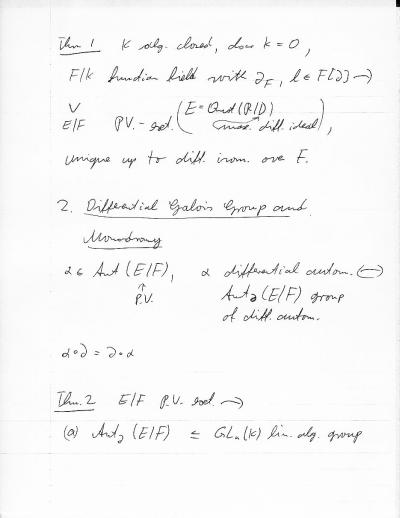 Thm 1 K alg. closed, char K = 0,
F/K function field with ∂_F, l ∈ F[∂] →
∨ E/F P.V.-ext. (E = Quot(R/D) max. diff. ideal),
unique up to diff. isom. over F.
2. Differential Galois Group and
Monodromy
α ∈ Aut (E/F), α differential autom. ↔
↑ P.V. Aut_∂ (E/F) group
of diff. autom.
α∘∂ = ∂∘α
Thm. 2 E/F P.V.-ext. →
(a) Aut_∂ (E/F) ≤ GL_n(K) lin. alg. group